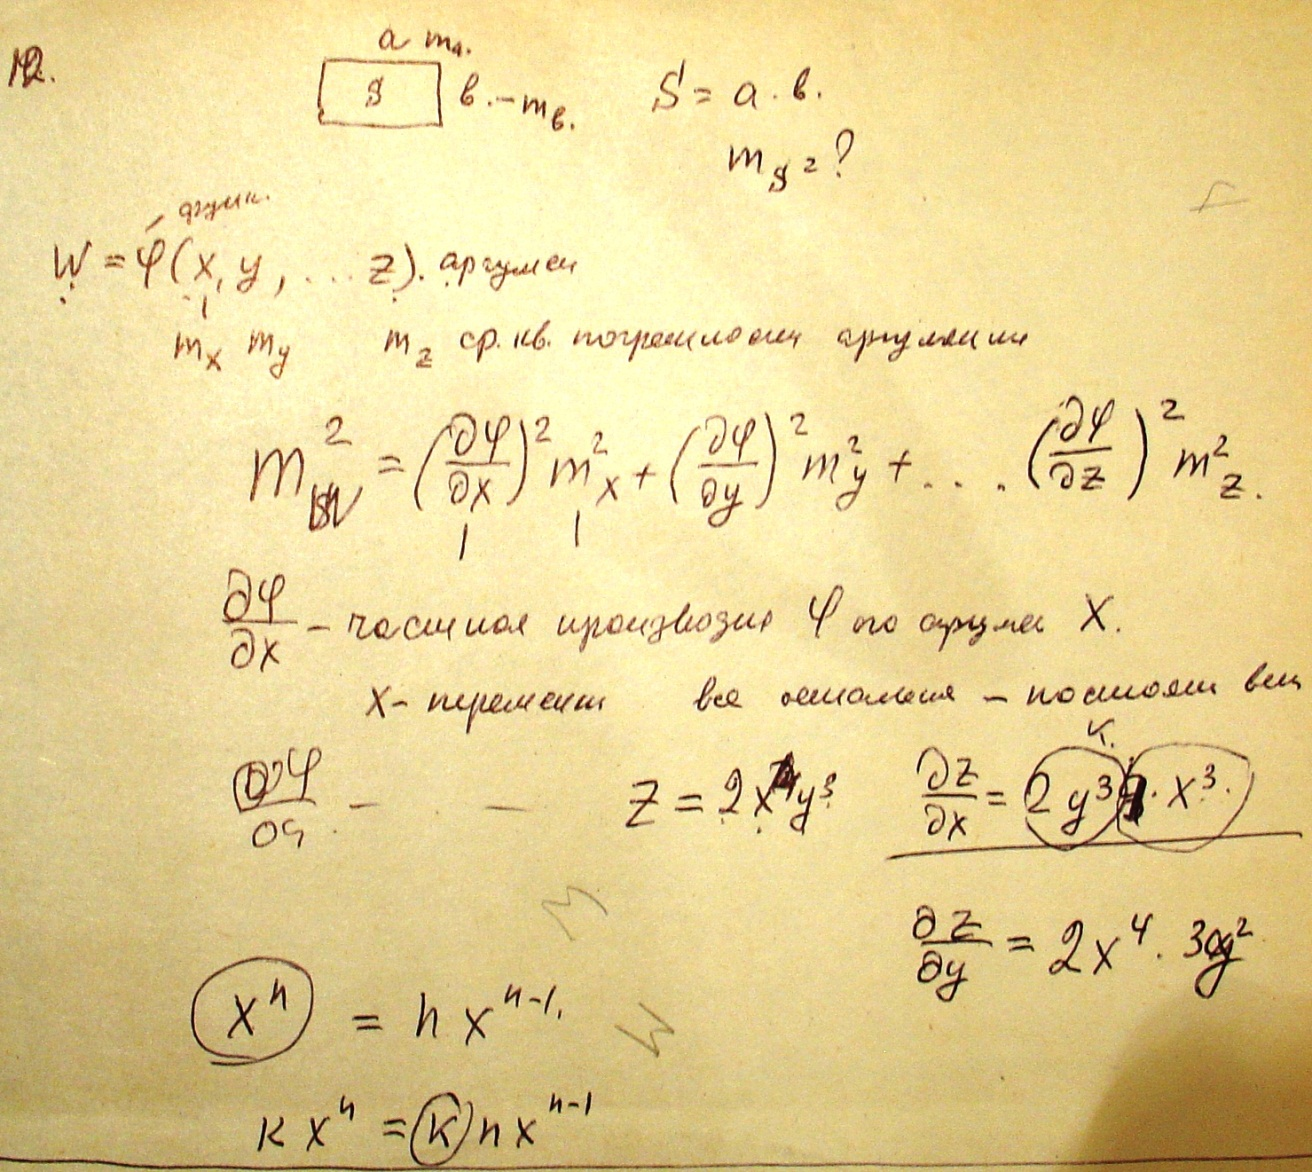 12.
a m_a.
S b. - m_b. S = a · b.
m_S = ?
функ.
W = φ(x, y, ... z). аргумен
m_x m_y m_z ср. кв. погрешности аргументии
m_W^2 = (∂φ/∂x)^2 m_x^2 + (∂φ/∂y)^2 m_y^2 + . . . (∂φ/∂z)^2 m_z^2.
∂φ/∂x - частная производн φ по аргумен X.
X - перемен все остальные - постоян вел
K.
∂φ/∂y - - Z = 2x^4y^3 ∂z/∂x = 2y^3 · x^3.
∂z/∂y = 2x^4 · 3y^2
x^n = n x^{n-1}.
K x^n = K n x^{n-1}